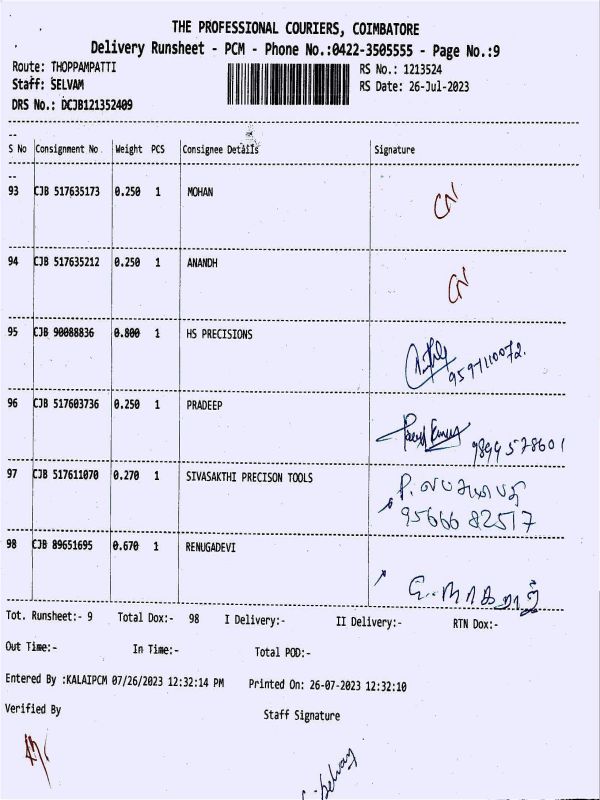 THE PROFESSIONAL COURIERS, COIMBATORE
Delivery Runsheet - PCM - Phone No.:0422-3505555 - Page No.:9
Route: THOPPAMPATTI RS No.: 1213524
Staff: SELVAM RS Date: 26-Jul-2023
DRS No.: DCJB121352409
S No Consignment No Weight PCS Consignee Details Signature
93 CJB 517635173 0.250 1 MOHAN
94 CJB 517635212 0.250 1 ANANDH
95 CJB 90088836 0.800 1 HS PRECISIONS
9597110072.
96 CJB 517603736 0.250 1 PRADEEP
9894578601
97 CJB 517611070 0.270 1 SIVASAKTHI PRECISON TOOLS
9566682517
98 CJB 89651695 0.670 1 RENUGADEVI
Tot. Runsheet:- 9 Total Dox:- 98 I Delivery:- II Delivery:- RTN Dox:-
Out Time:- In Time:- Total POD:-
Entered By :KALAIPCM 07/26/2023 12:32:14 PM Printed On: 26-07-2023 12:32:10
Verified By Staff Signature